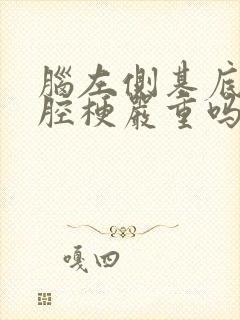 腦左側基底
腔梗嚴重吗
嘎四